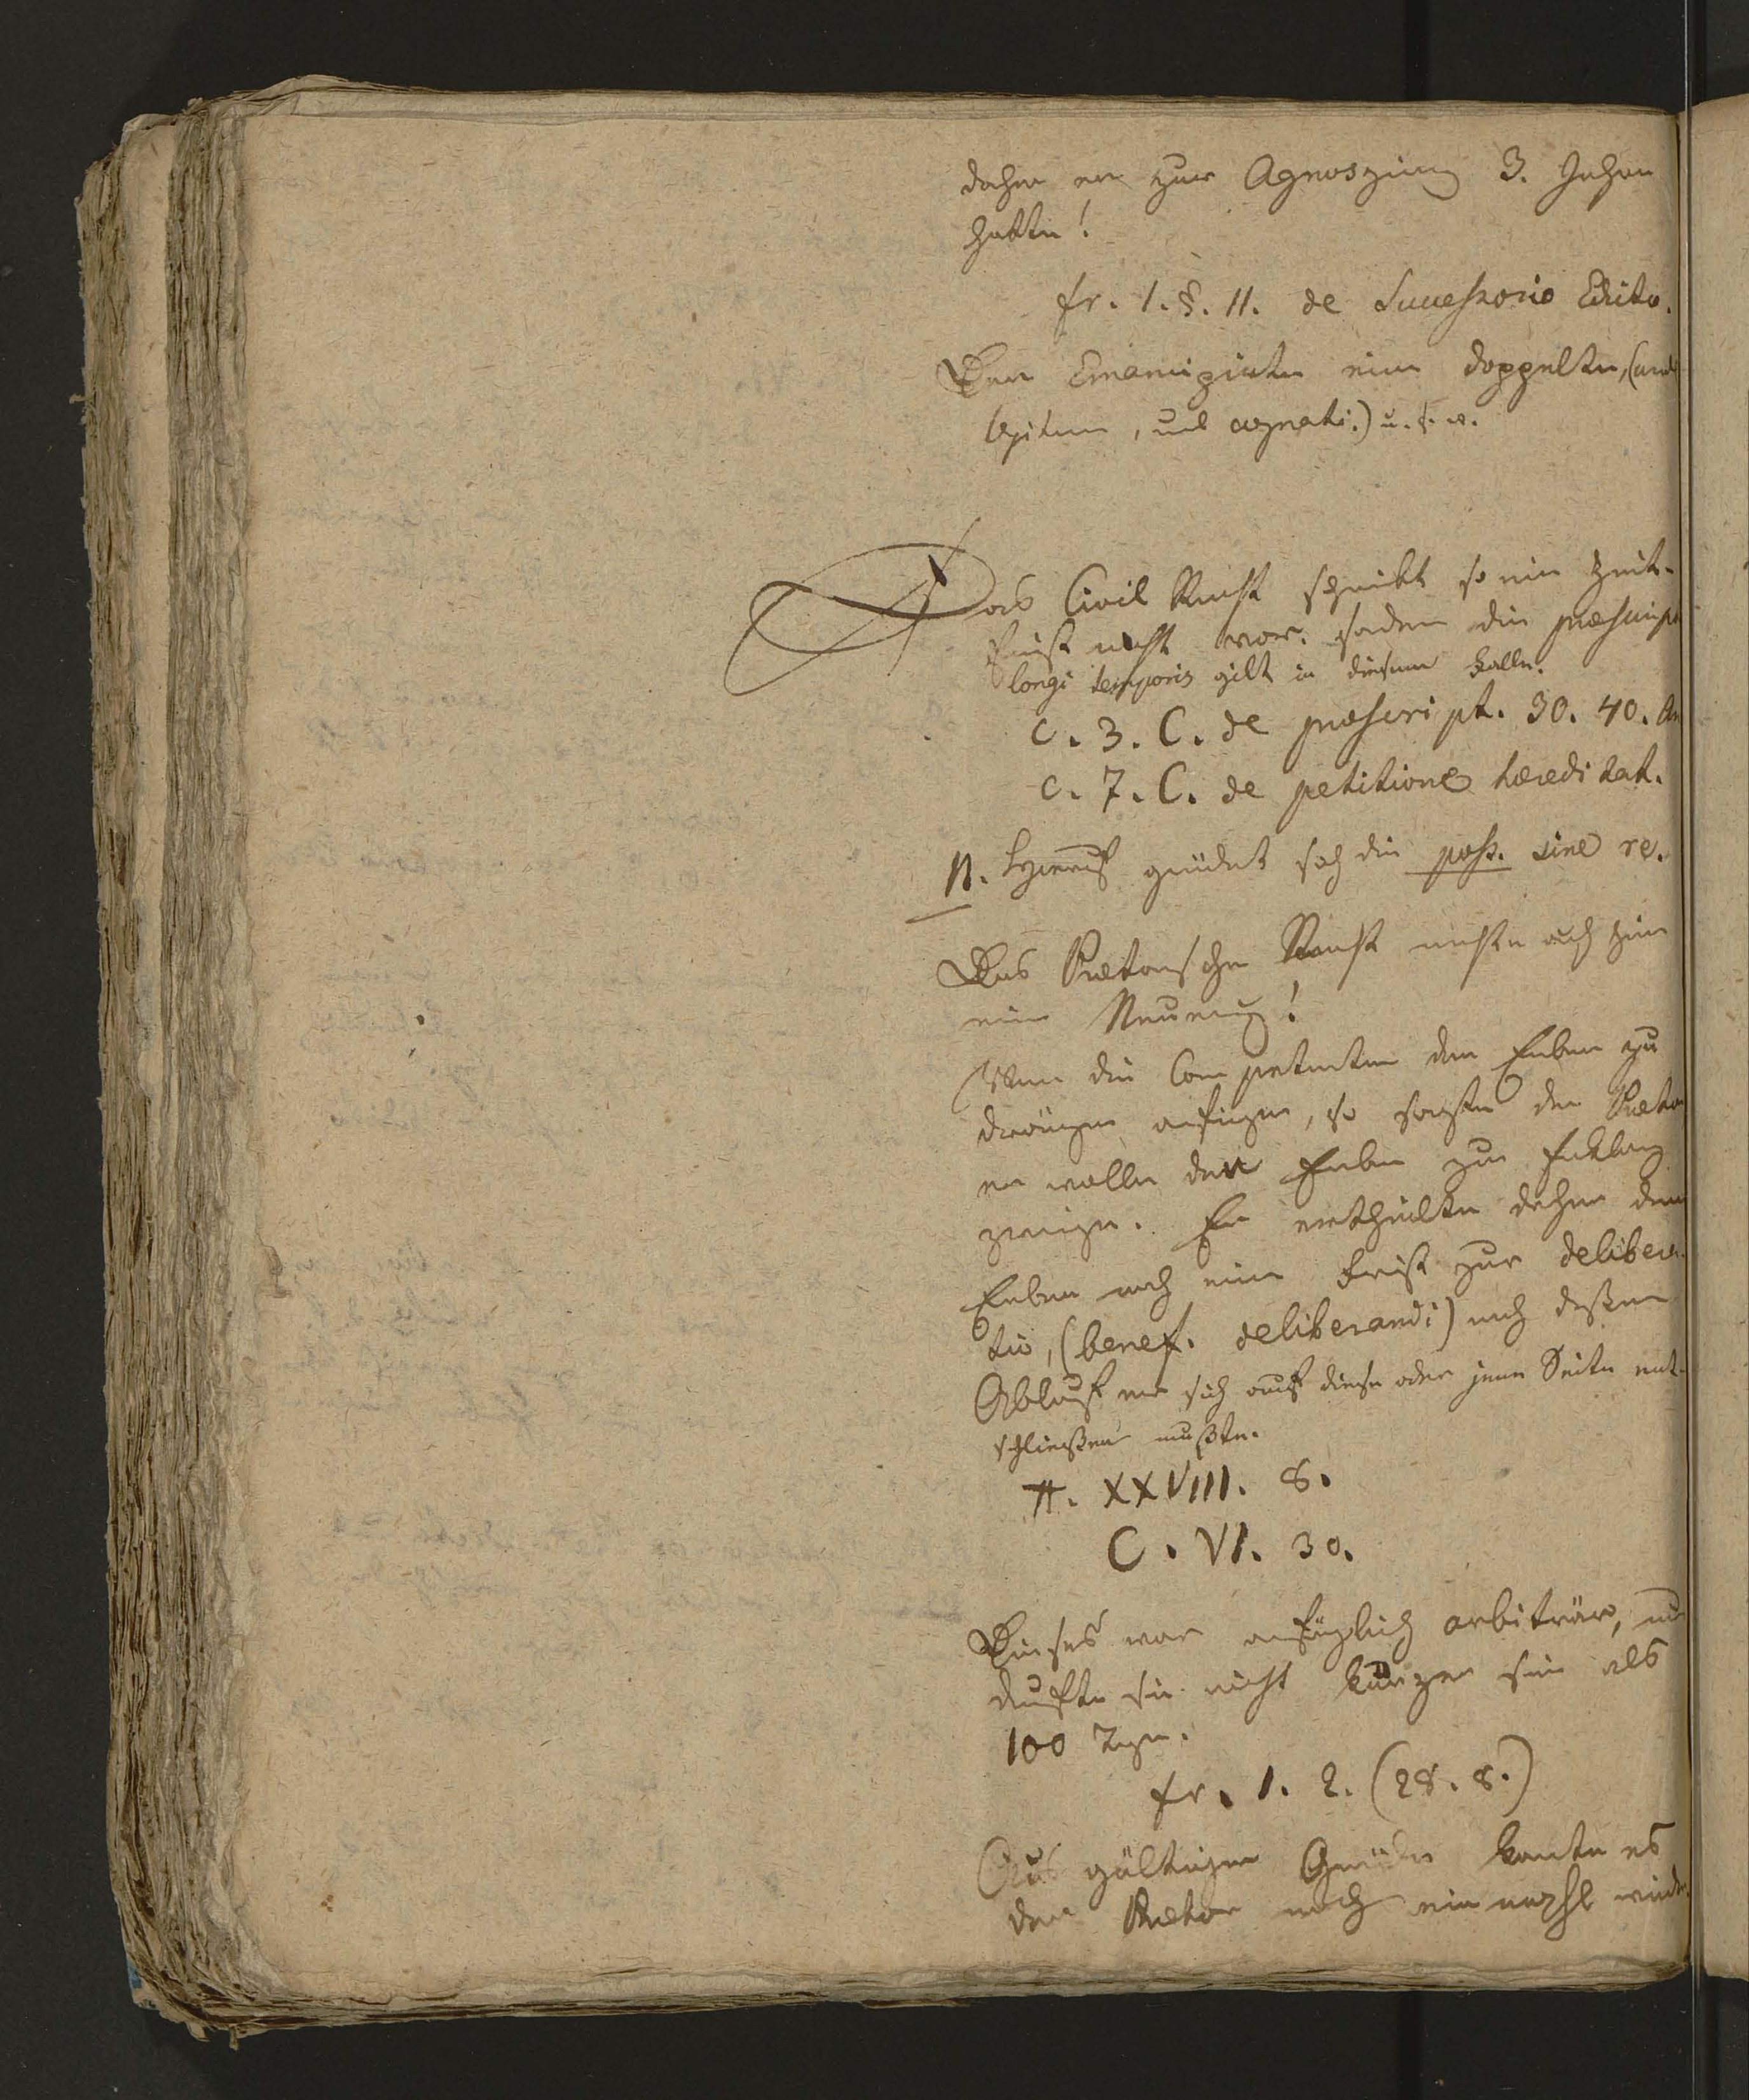 daher er zur Agnoszirung 3. Jahre
hatte!
fr. 1. §. 11. de Successorio Edicto.
Der Emancipirte eine doppelte, (unde
legitimi, und agnati:) u. s. w.
Das Civil Recht schreibt so eine Zeit-
frist nicht vor. sondern die præscript
longi temporis gilt in diesem Falle.
c. 3. C. de præscript. 30. 40. An
c. 7. C. de petitione hæreditat.
N. Hierauf gründet sich die poss. sine re.
Das Prætorische Recht machte auch hier
eine Neuerung!
Wenn die Competenten den Erben zu
drängen anfiengen, so sagte der Prætor
er wolle den Erben zur Erklärung
zwingen. Er ertheilte daher dem
Erben noch eine Frist zur delibera-
tio, (benef. deliberandi) nach deßen
Ablauf er sich auf diese oder jene Seite ent-
schließen mußte.
π. XXVIII. 8.
C. VI. 30.
Dieses war anfänglich arbiträr, nur
durfte sie nicht kürzer sein als
100 Tage.
fr. 1. 2. (28. 8.)
Aus gültigen Gründen konnte es
der Prætor noch einmahl wieder